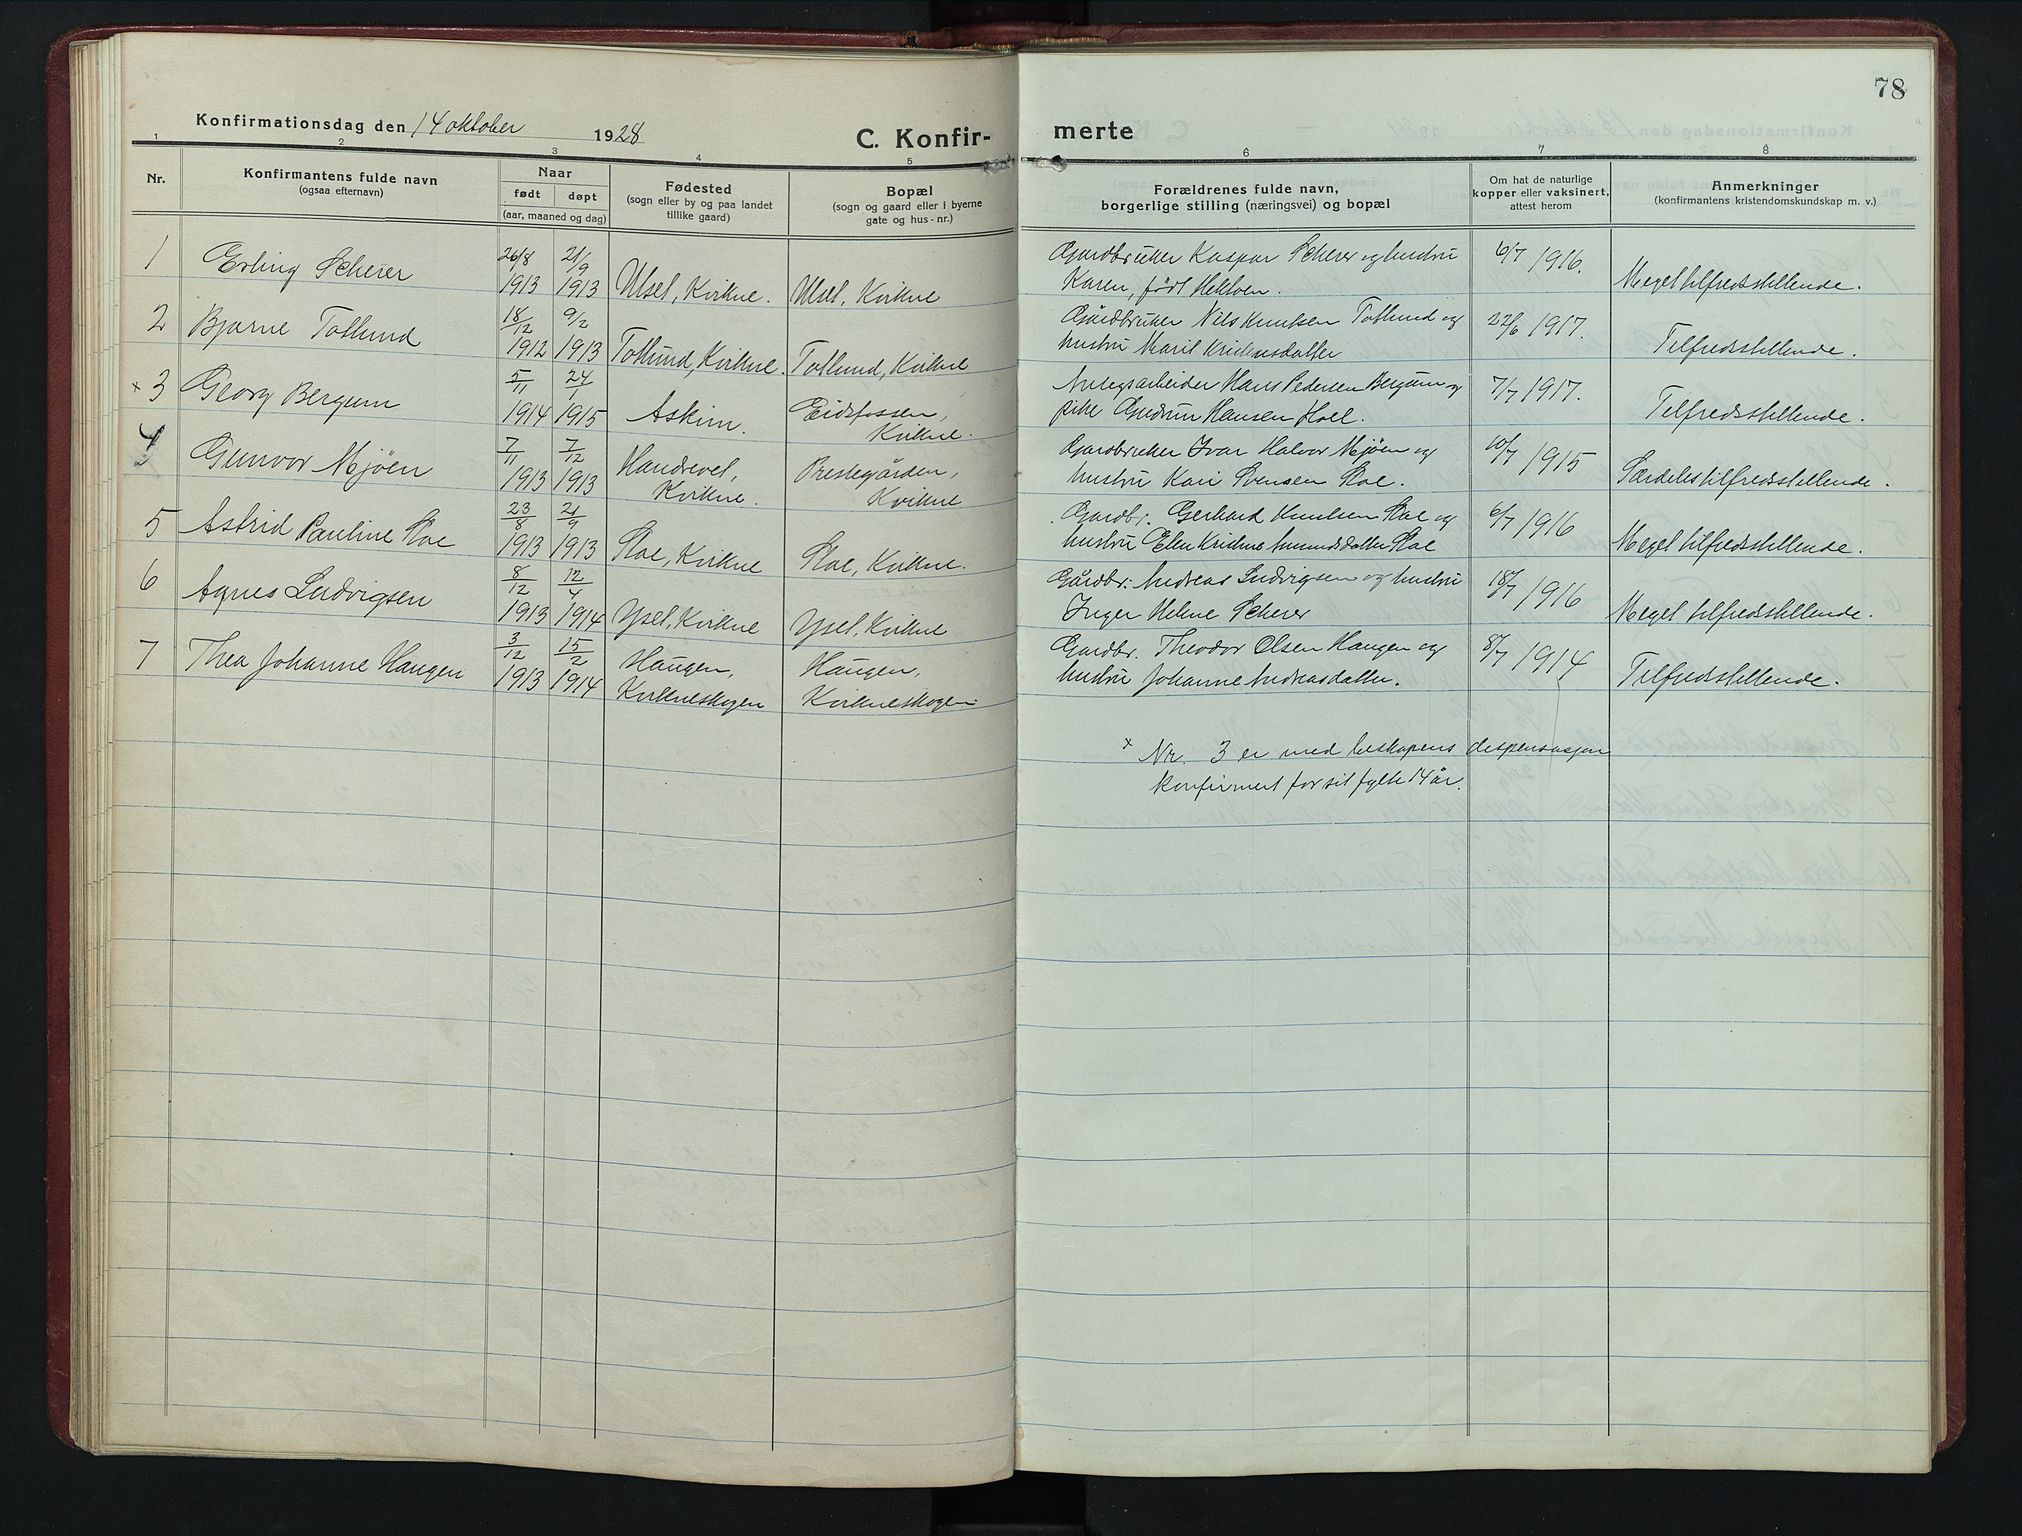 78
Konfirmationsdag den 14 oktober 1928
C. Konfir-
merte
1 2 3 4 5 6 7 8
Nr.
Konfirmantens fulde navn
(ogsaa efternavn)
Naar
født døpt
(aar, maaned og dag)
Fødested
(sogn eller by og paa landet
tillike gaard)
Bopæl
(sogn og gaard eller i byerne
gate og hus-nr.)
Forældrenes fulde navn,
borgerlige stilling (næringsvei) og bopæl
Om hat de naturlige
kopper eller vaksinert,
attest herom
Anmerkninger
(konfirmantens kristendomskundskap m. v.)
1 Erling Scherer 26/8 1913 21/9 1913 Ulset, Kvikne. Ulset, Kvikne
Gardbruker Kaspar Scherer og hustru
Karen, født 6/7 1916. Meget tilfredsstillende.
2 Bjarne Tollund 18/12 1912 9/2 1913 Tollund, Kvikne. Tollund, Kvikne
Gårdbruker Nils Knutsen Tollund og
hustru Marit 22/6 1917. Tilfredsstillende.
x 3 Georg Bergum 5/11 1914 24/1 1915 Askim. Eidsfossen,
Kvikne.
Anlegsarbeider Hans Pedersen Bergum og
pike Gudrun Hansen 7/7 1917. Tilfredsstillende.
4 Gunvor Mjøen 7/11 1913 7/12 1913 Kvikne. Prestegården,
Kvikne
Gardbruker Ivar Halvor Mjøen og
hustru Kari Svensen Stoe. 10/7 1915 Særdeles tilfredsstillende.
5 Astrid Pauline Stoe 23/8 1913 21/9 1913 Stoe, Kvikne Stoe, Kvikne.
Gardbr. Gerhard Knutsen Stoe og
hustru Elen Kristine Amundsdatter Stoe 6/7 1916 Meget tilfredsstillende.
6 Agnes Ludvigsen 8/12 1913 12/4 1914 Yset, Kvikne Yset, Kvikne
Gårdbr: Andreas Ludvigsen og hustru
Inger Helene Scherer 18/7 1916 Meget tilfredsstillende.
7 Thea Johanne Haugen 3/12 1913 15/2 1914 Haugen,
Kvikneskogen Haugen,
Kvikneskogen
Gardbr. Theodor Olsen Haugen og
hustru Johanne Andreasdatter. 8/7 1914 Tilfredsstillende.
x Nr. 3 er med biskopens dispensasjon
konfirmert før sit fylte 14 år.